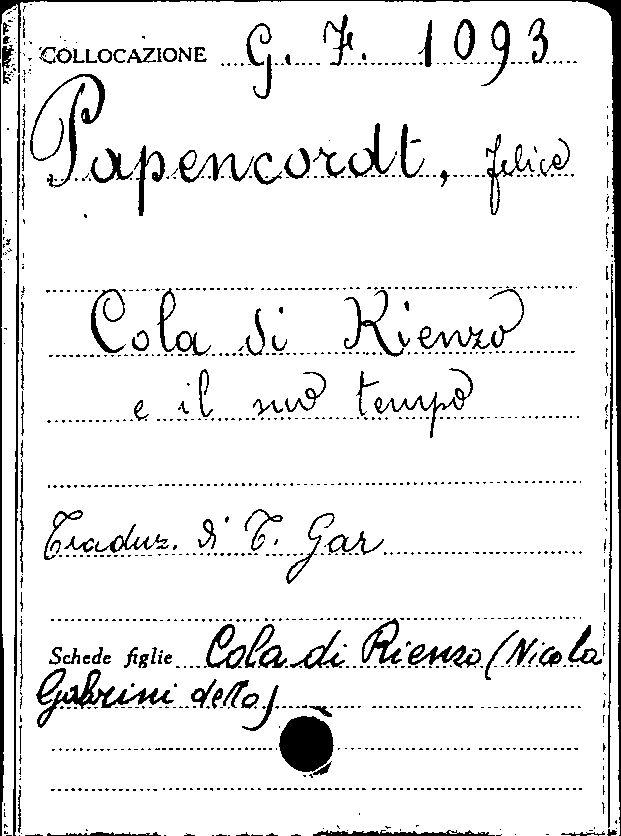 COLLOCAZIONE G. F. 1093
Papencordt, Felice
Cola di Rienzo
e il suo tempo
Traduz. di T. Gar
Schede figlie Cola di Rienzo (Nicola
Gabrini detto)